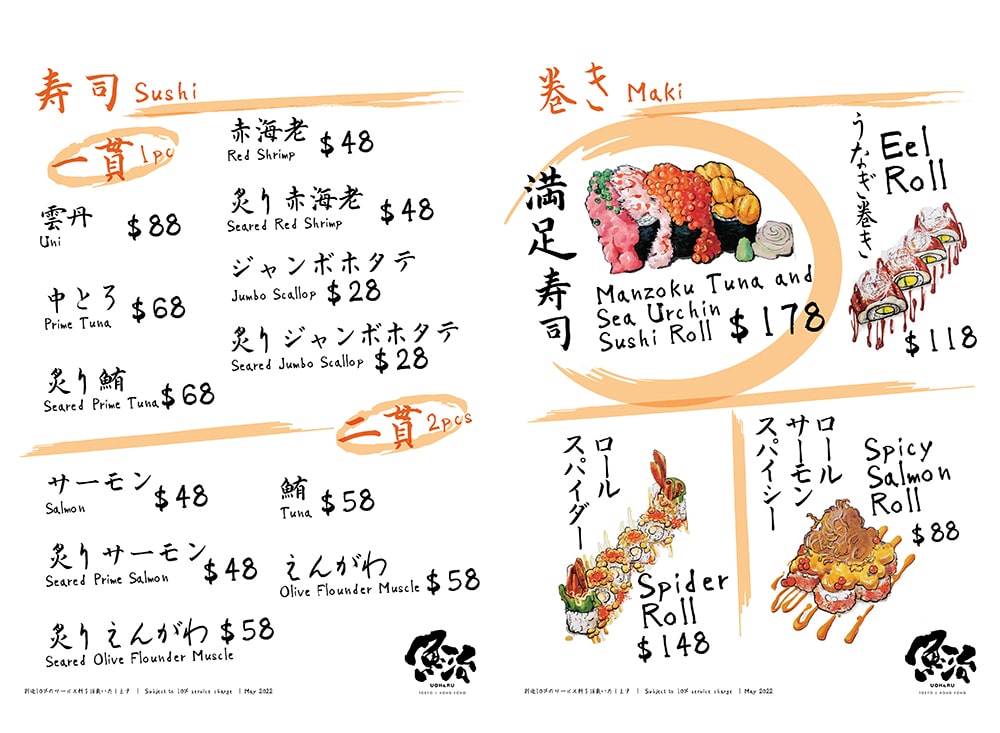 寿司 Sushi
一貫 1pc
雲丹
Uni
$88
中とろ
Prime Tuna
$68
炙り鮪
Seared Prime Tuna
$68
赤海老
Red Shrimp
$48
炙り赤海老
Seared Red Shrimp
$48
ジャンボホタテ
Jumbo Scallop
$28
炙りジャンボホタテ
Seared Jumbo Scallop
$28
二貫 2pcs
サーモン
Salmon
$48
炙りサーモン
Seared Prime Salmon
$48
炙りえんがわ
Seared Olive Flounder Muscle
$58
鮪
Tuna
$58
えんがわ
Olive Flounder Muscle
$58
魚治
UOHARU
TOKYO | HONG KONG
別途10%のサービス料を頂戴いたします | Subject to 10% service charge | May 2022
巻き Maki
満足寿司
Manzoku Tuna and
Sea Urchin
Sushi Roll
$178
うなぎ巻き
Eel
Roll
$118
スパイダー
ロール
Spider
Roll
$148
スパイシー
サーモン
ロール
Spicy
Salmon
Roll
$88
魚治
UOHARU
TOKYO | HONG KONG
別途10%のサービス料を頂戴いたします | Subject to 10% service charge | May 2022